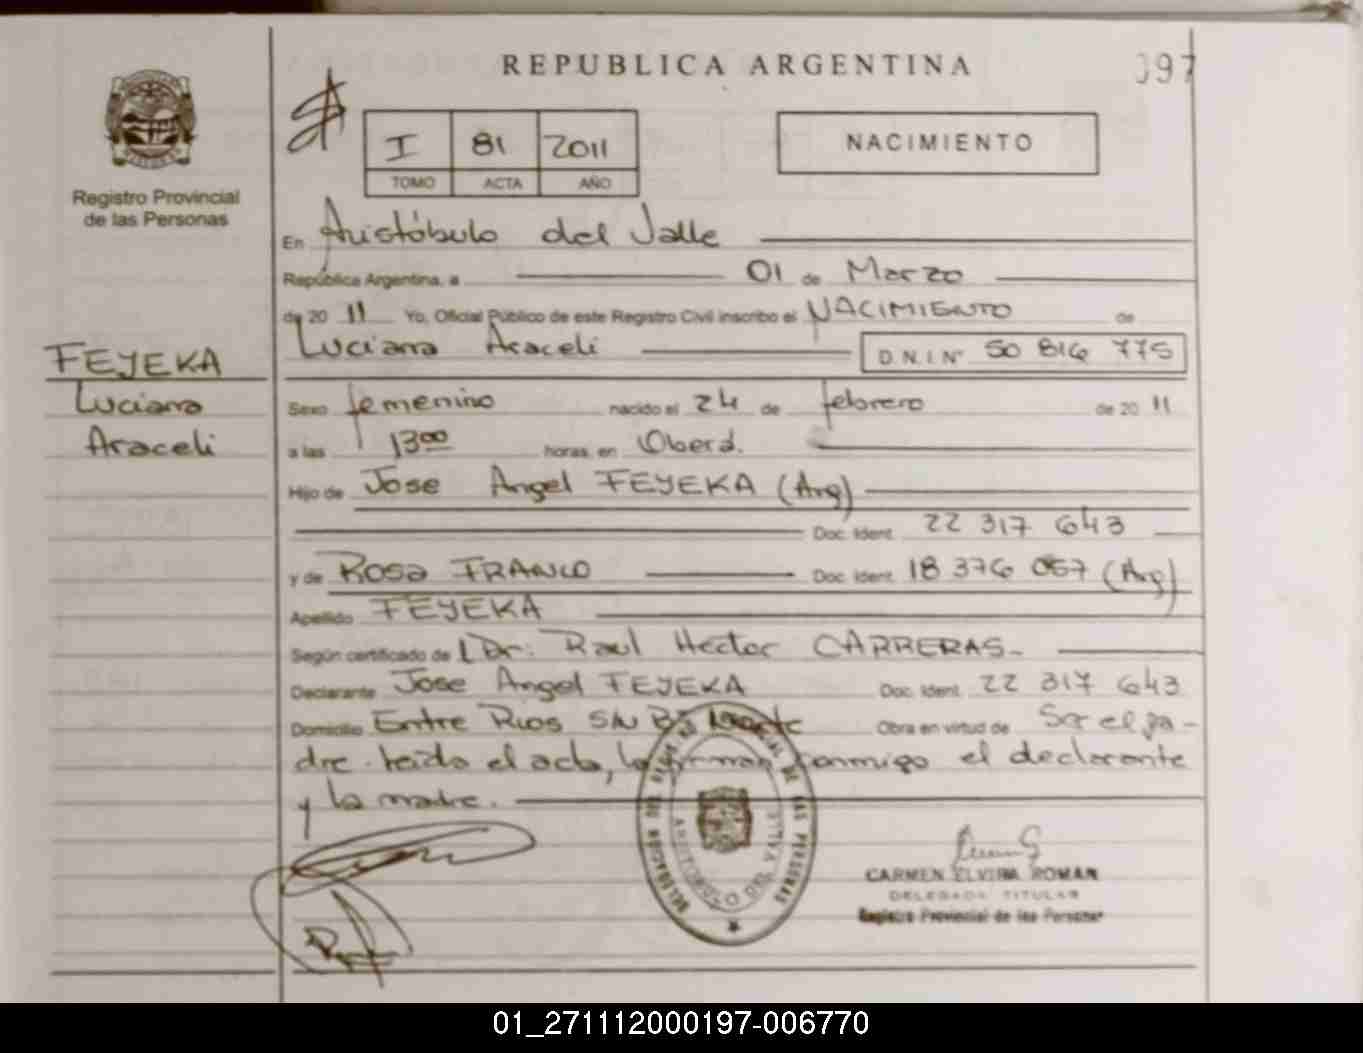 REPUBLICA ARGENTINA
097
Registro Provincial
de las Personas
I 81 2011
TOMO ACTA AÑO
NACIMIENTO
En Aristóbulo del Valle
República Argentina, a 01 de Marzo
de 20 11 Yo, Oficial Público de este Registro Civil inscribo el NACIMIENTO de
Luciana Araceli D.N.I Nº 50 816 775
FEYEKA
Luciana
Araceli
Sexo femenino nacido el 24 de febrero de 20 11
a las 13 00 horas, en Oberá.
Hijo de Jose Angel FEYEKA (Arg)
Doc. Ident. 22 317 643
y de Rosa FRANCO Doc. Ident. 18 376 057 (Arg)
Apellido FEYEKA
Según certificado de Dr. Raul Hector CARRERAS
Declarante Jose Angel FEYEKA Doc. Ident. 22 317 643
Domicilio Entre Rios S/N Bº Obra en virtud de Ser el pa-
dre. Leida el acta, la firman conmigo el declarante
y la madre.
DELEGACION DEL REGISTRO PROVINCIAL DE LAS PERSONAS
ARISTOBULO DEL VALLE
CARMEN ELVIRA ROMAN
DELEGADA TITULAR
Registro Provincial de las Personas
01_271112000197-006770